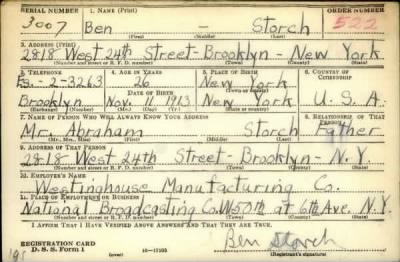 SERIAL NUMBER 1. NAME (Print) ORDER NUMBER
3007 Ben - Storch 522
(First) (Middle) (Last)
3. ADDRESS (Print)
2818 West 24th Street-Brooklyn New York
(Number and street or R. F. D. number) (Town) (County) (State)
3. TELEPHONE 4. AGE IN YEARS 5. PLACE OF BIRTH 6. COUNTRY OF CITIZENSHIP
-2-3263 26 New York
(Town or county)
DATE OF BIRTH
Brooklyn Nov. 11, 1913 New York U. S. A.
(Exchange) (Number) (Mo.) (Day) (Yr.) (State or country)
7. NAME OF PERSON WHO WILL ALWAYS KNOW YOUR ADDRESS 8. RELATIONSHIP OF THAT PERSON
Mr. Abraham Storch Father
(Mr., Mrs., Miss) (First) (Middle) (Last)
9. ADDRESS OF THAT PERSON
2818 West 24th Street-Brooklyn-N.Y.
(Number and street or R. F. D. number) (Town) (County) (State)
10. EMPLOYER'S NAME
Westinghouse Manufacturing Co.
11. PLACE OF EMPLOYMENT OR BUSINESS
National Broadcasting Co. W50th at 6th Ave. N.Y.
(Number and street or R. F. D. number) (Town) (County) (State)
I AFFIRM THAT I HAVE VERIFIED ABOVE ANSWERS AND THAT THEY ARE TRUE.
REGISTRATION CARD
D. S. S. Form 1 16-17105 Ben Storch
(Registrant's signature)